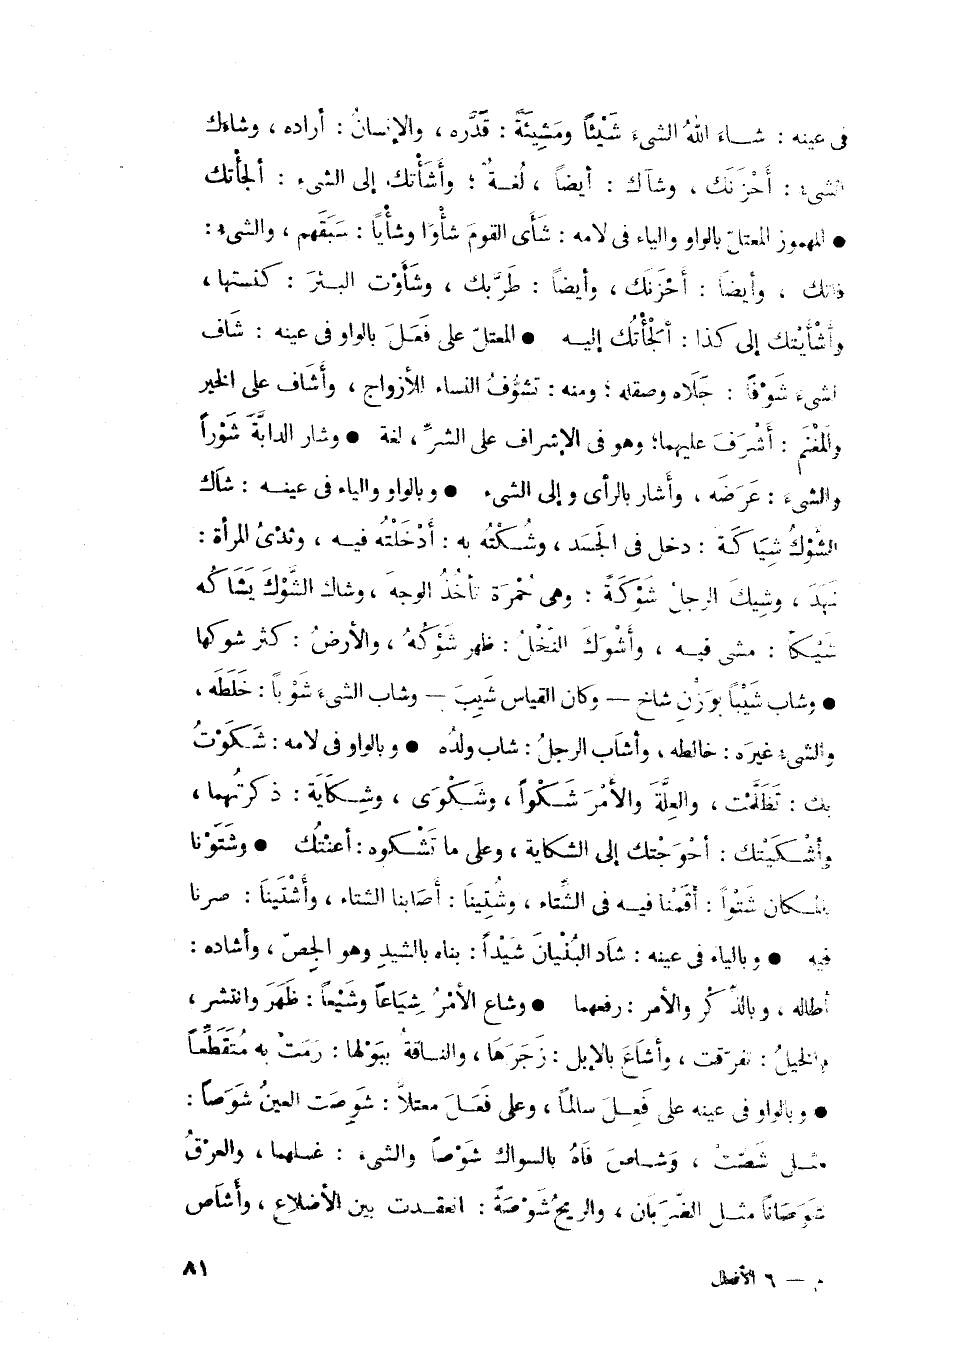 فى عينه : شـاءَ اللهُ الشىءَ شَيْئاً ومَشِيئَةً : قَدَّره ، والإنسانُ : أراده ، وشاءَك
الشىءُ : أَحْزَنَك ، وشآك : أيضاً ، لُغـةٌ ؛ وأَشَأْتك إلى الشىء : ألجأْتك
● المهموز المعتلّ بالواو والياء فى لامه : شَأَى القومَ شأْوًا وشأْياً : سَبَقَهم ، والشىءُ :
فاتك ، وأيضاً : أَحْزَنَك ، وأيضاً : طَرَّبك ، وشَأَوْت البـئرَ : كنستها ،
وأَشْأَيْتك إلى كذا : ألجَأْتُك إليـه ● المعتلّ على فَعَـلَ بالواو فى عينه : شَاف
الشىءَ شَوْفاً : جَلَاه وصقله ؛ ومنه : تشوُّفُ النساء للأزواج ، وأَشَاف على الخير
والمَغْنَم : أَشْرَفَ عليهما؛ وهو فى الإشراف على الشرِّ ، لغة ● وشار الدابَّةَ شَوْراً
والشىءَ : عَرَضَه ، وأَشار بالرأى وإلى الشىء ● وبالواو والياء فى عينـه : شاك
الشَّوْكُ شِيَاكَـة : دخل فى الجَسد ، وشُـكْتُه به : أَدْخَلْتُه فيـه ، وثدْىُ المرأة :
نَهَدَ ، وشِيكَ الرجلُ شَوْكَةً : وهى حُمْرَة تأخُذُ الوجهَ ، وشاك الشَّوْكَ يَشَاكُه
شَيْـكاً : مشى فيـه ، وأَشْوَكَ النَّخْلُ : ظهر شَوْكُهُ ، والأرضُ : كثر شوكها
● وشاب شَيْبًا بوَزْنِ شاخ — وكان القياس شَيِبَ — وشاب الشىءَ شَوْباً : خَلَطَه ،
والشىءُ غيرَه : خالطه ، وأشاب الرجلُ : شاب ولدُه ● وبالواو فى لامه : شَـكَوْتُ
بك : تَظَلَّمْت ، والعِلَّةَ والأمْرَ شَـكْواً ، وشَـكْوَى ، وشِـكَايَة : ذكرتُهما ،
وأَشْـكَيْتك : أحْوَجْتك إلى الشكاية ، وعلى ما تَشْـكوه : أعنْتُك ● وشَتَوْنا
بالمـكان شَتْواً : أقَمْنا فيـه فى الشِّتاء ، وشُتِينَا : أصَابنا الشتاء ، وأَشْتَينَا : صرنا
فيه ● وبالياء فى عينه : شاد البُنْيانَ شَيْداً : بناه بالشيدِ وهو الجِصّ ، وأشاده :
أطاله ، وبالذِّكْر والأمر : رفعهما ● وشاع الأمْرُ شِيَاعاً وشَيْعاً : ظَهَرَ وانتشر ،
والخيلُ : تفرّقت ، وأشاعَ بالإبل : زَجَرَهَا ، والنـاقةُ ببَوْلها : رَمَتْ به مُتَقَطِّعاً
● وبالواو فى عينه على فَعِـلَ سالماً ، وعلى فَعَـلَ معتلاًّ : شَوِصَت العينُ شَوَصاً :
مثـلى شَصَتْ ، وَشَـاصَ فَاهُ بالسواك شَوْصاً والشىءَ : غسلهما ، والعرْقُ
شَوَصَاناً مثـل الضَّرَبَان ، والريحُ شَوْصَةً : انعقـدت بين الأضلاع ، وأَشَاص
م — ٦ الأفعال
٨١